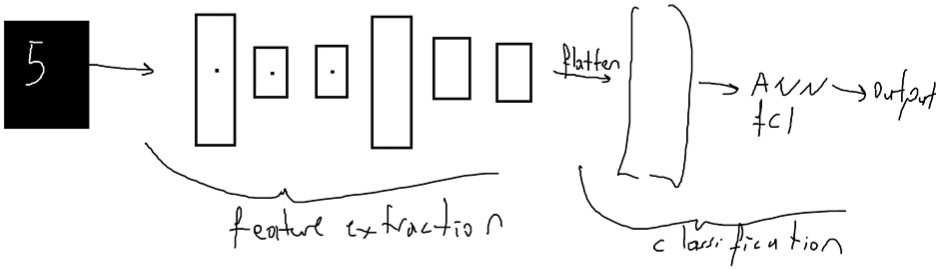 5
flatten
ANN
fcl
output
feature extraction
classification